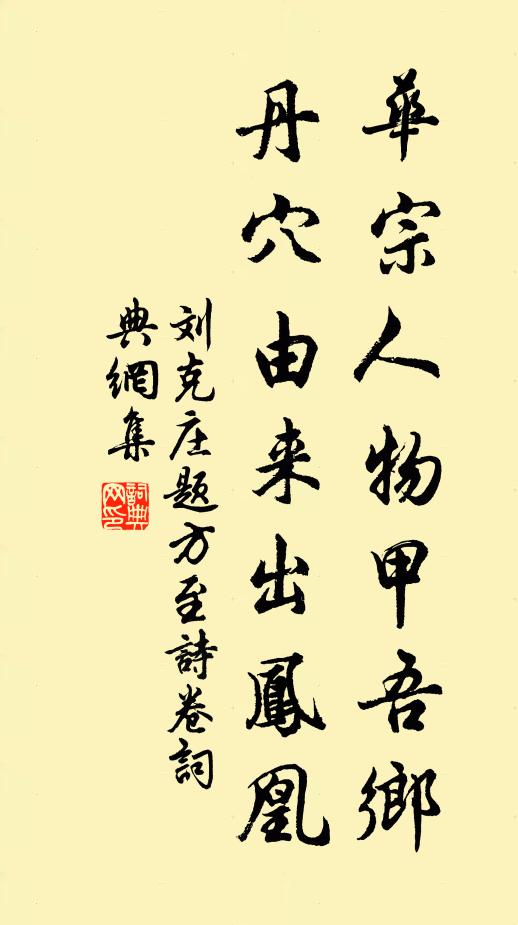 華宗人物甲吾鄉
丹穴由来出鳳凰
刘克庄题方至詩卷詞
典網集
詞典
网印